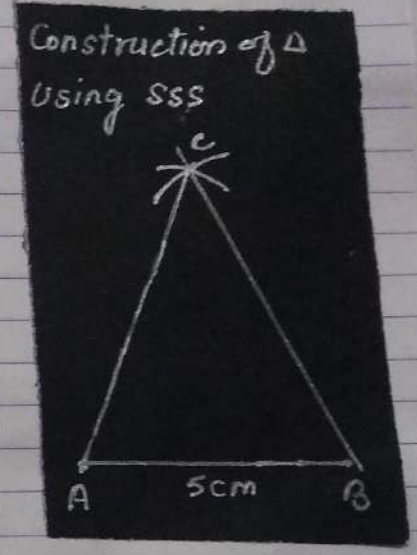 Construction of Δ
Using SSS
C
5cm
A
B